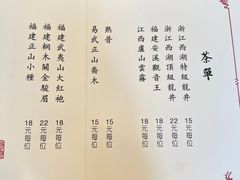 茶單
浙江西湖特級龍井 15元每位
浙江西湖頂級龍井 22元每位
福建安溪觀音王 18元每位
江西廬山雲霧 15元每位
熟普 15元每位
易武正山喬木 15元每位
福建武夷山大紅袍 18元每位
福建桐木關金駿眉 22元每位
福建正山小種 18元每位